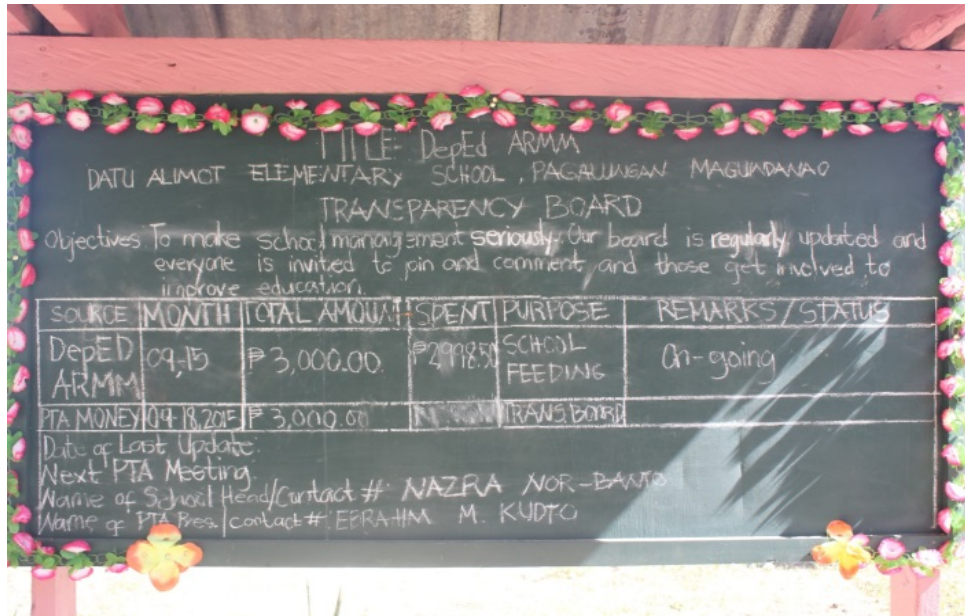 TITLE- DepEd ARMM
DATU ALIMOT ELEMENTARY SCHOOL, PAGALUNGAN MAGUINDANAO
TRANSPARENCY BOARD
Objectives To make school management seriously. Our board is regularly updated and
everyone is invited to join and comment and those get involved to
improve education.
SOURCE MONTH TOTAL AMOUNT SPENT PURPOSE REMARKS/STATUS
DepED ARMM 09,15 ₱3,000.00 ₱2998.50 SCHOOL FEEDING On-going
PTA MONEY 09-18,2015 ₱ 3,000.00 TRANS.BOARD
Date of Last Update:
Next PTA Meeting:
Name of School Head/Contact # NAZRA NOR-BANTO
Name of PTA Pres. / contact # EBRAHIM M. KUDTO